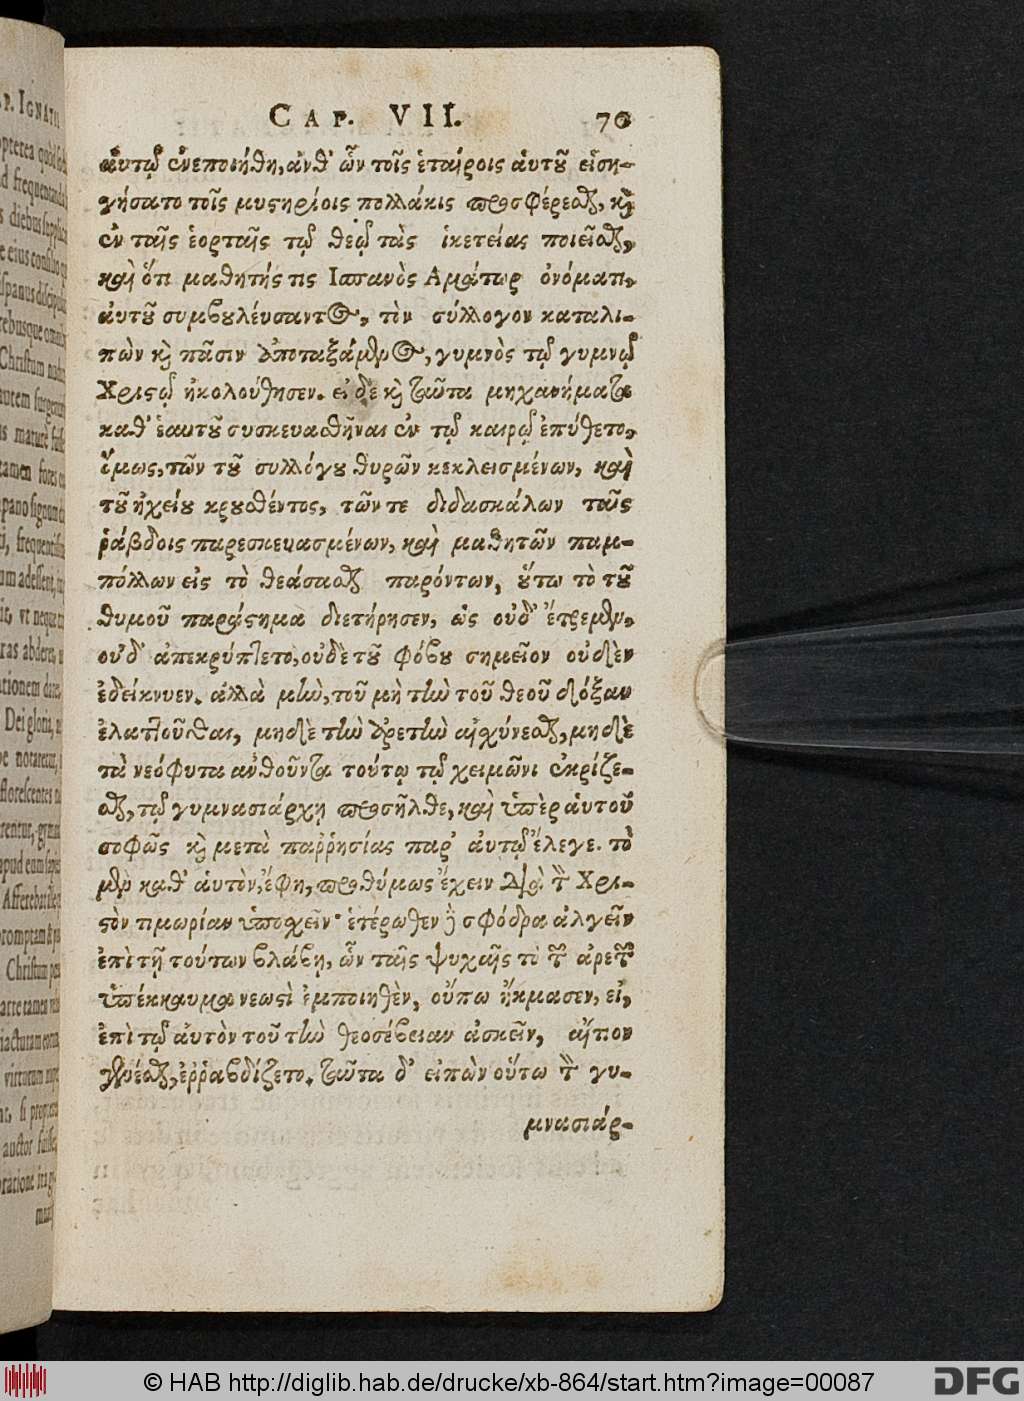 CAP. VII. 70
ἀυτῷ ἐνεποιήθη, ἀνθ' ὧν τοῖς ἑταίροις ἀυτοῦ εἰση-
γήσατο τοῖς μυστηρίοις πολλάκις προσφέρεσθαι, καὶ
ἐν ταῖς ἑορταῖς τῷ θεῷ τὰς ἱκετείας ποιεῖσθαι,
καὶ ὅτι μαθητής τις Ισπανὸς Αμάτωρ ὀνόματι,
ἀυτοῦ συμβουλέυσαντος, τὸν σύλλογον καταλι-
πὼν καὶ πᾶσιν ἀποταξάμενος, γυμνὸς τῷ γυμνῷ
Χριστῷ ἠκολούθησεν. εἰ δὲ καὶ ταῦτα μηχανήματα
καθ' ἑαυτοῦ συσκευασθῆναι ἐν τῷ καιρῷ ἐπύθετο,
ὅμως, τῶν τοῦ συλλόγου θυρῶν κεκλεισμένων, καὶ
τοῦ ἠχείου κρουσθέντος, τῶν τε διδασκάλων ταῖς
ῥάβδοις παρεσκευασμένων, καὶ μαθητῶν παμ-
πόλλων εἰς τὸ θεάσασθαι παρόντων, οὕτω τὸ τοῦ
θυμοῦ παράστημα διετήρησεν, ὡς οὐδ' ἔτρεμεν,
οὐδ' ἀπεκρύπτετο, οὐδὲ τοῦ φόβου σημεῖον οὐδὲν
ἐδείκνυεν. ἀλλὰ μὴν, τοῦ μὴ τὴν τοῦ θεοῦ δόξαν
ἐλαττοῦσθαι, μηδὲ τὴν ἀρετὴν αἰσχύνεσθαι, μηδὲ
τὰ νεόφυτα ἀνθοῦντα τούτῳ τῷ χειμῶνι ἐκρίζε-
σθαι, τῷ γυμνασιάρχῃ προσῆλθε, καὶ ὑπὲρ ἀυτοῦ
σοφῶς καὶ μετὰ παῤῥησίας παρ' ἀυτῷ ἔλεγε. τὸ
μὲν καθ' ἀυτὸν, ἔφη, προθύμως ἔχειν διὰ τὸν Χρι-
στὸν τιμωρίαν ὑποσχεῖν· ἑτέρωθεν δὲ σφόδρα ἀλγεῖν
ἐπὶ τῇ τούτων βλάβῃ, ὧν ταῖς ψυχαῖς τὸ τῆς ἀρετῆς
ὑπέκκαυμα νεωστὶ ἐμποιηθὲν, οὔπω ἤκμασεν, εἰ,
ἐπὶ τῷ ἀυτὸν τοῦ τὴν θεοσέβειαν ἀσκεῖν, αἴτιον
γενέσθαι, ἐῤῥαβδίζετο. ταῦτα δ' εἰπὼν οὕτω τὸν γυ-
μνασιάρ-
© HAB http://diglib.hab.de/drucke/xb-864/start.htm?image=00087
DFG